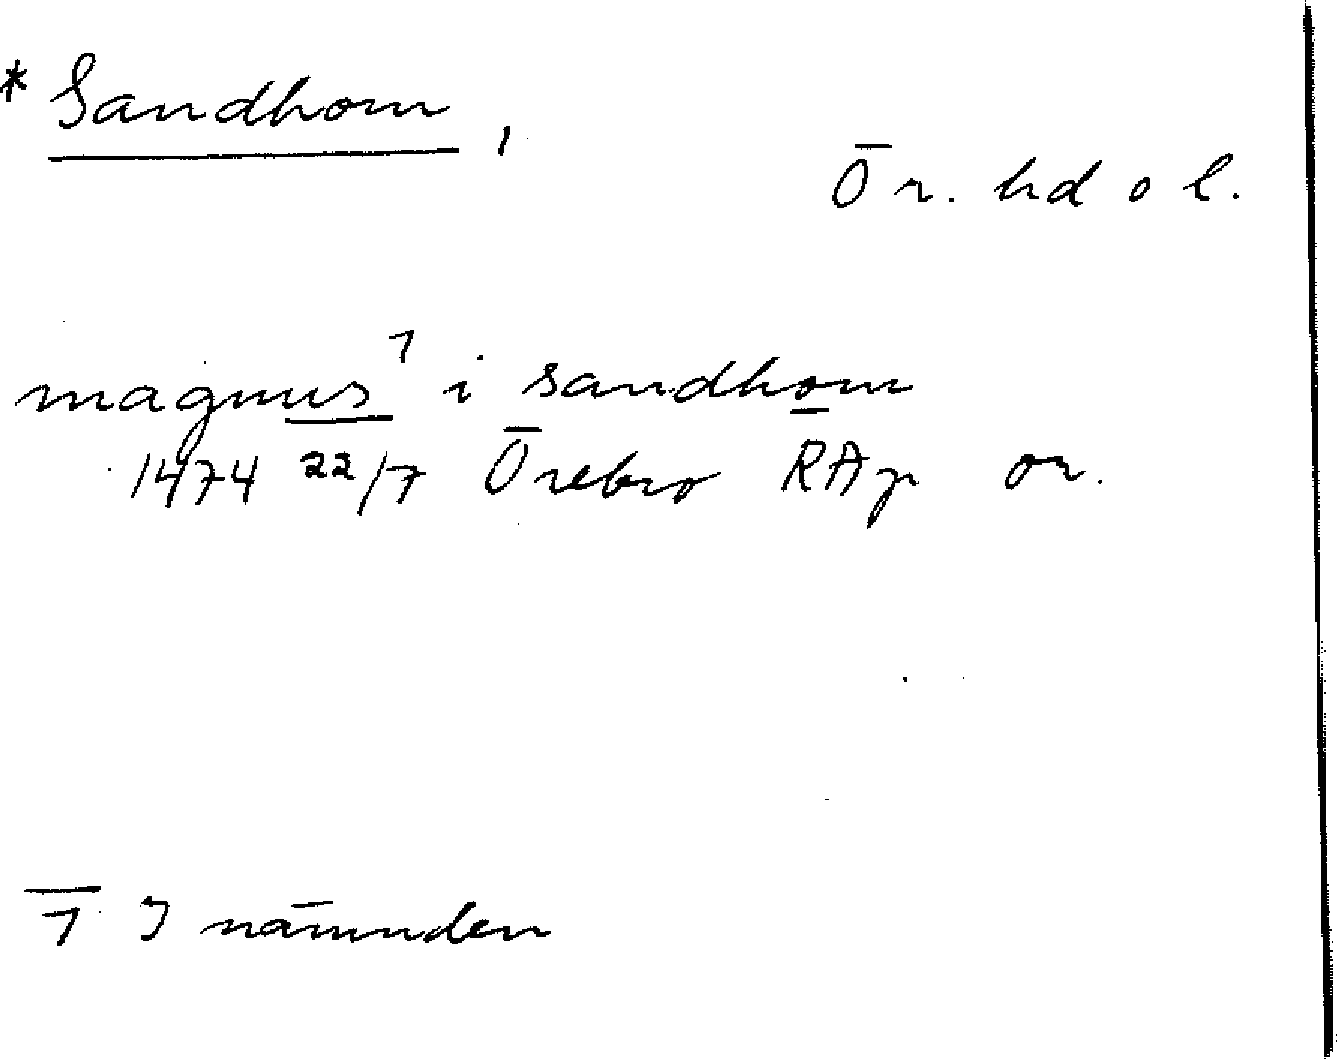 * Sandhom,
Ör. hd o l.
magnus¹ i sandhom
1474 22/7 Örebro RAp or.
1 I nämnden